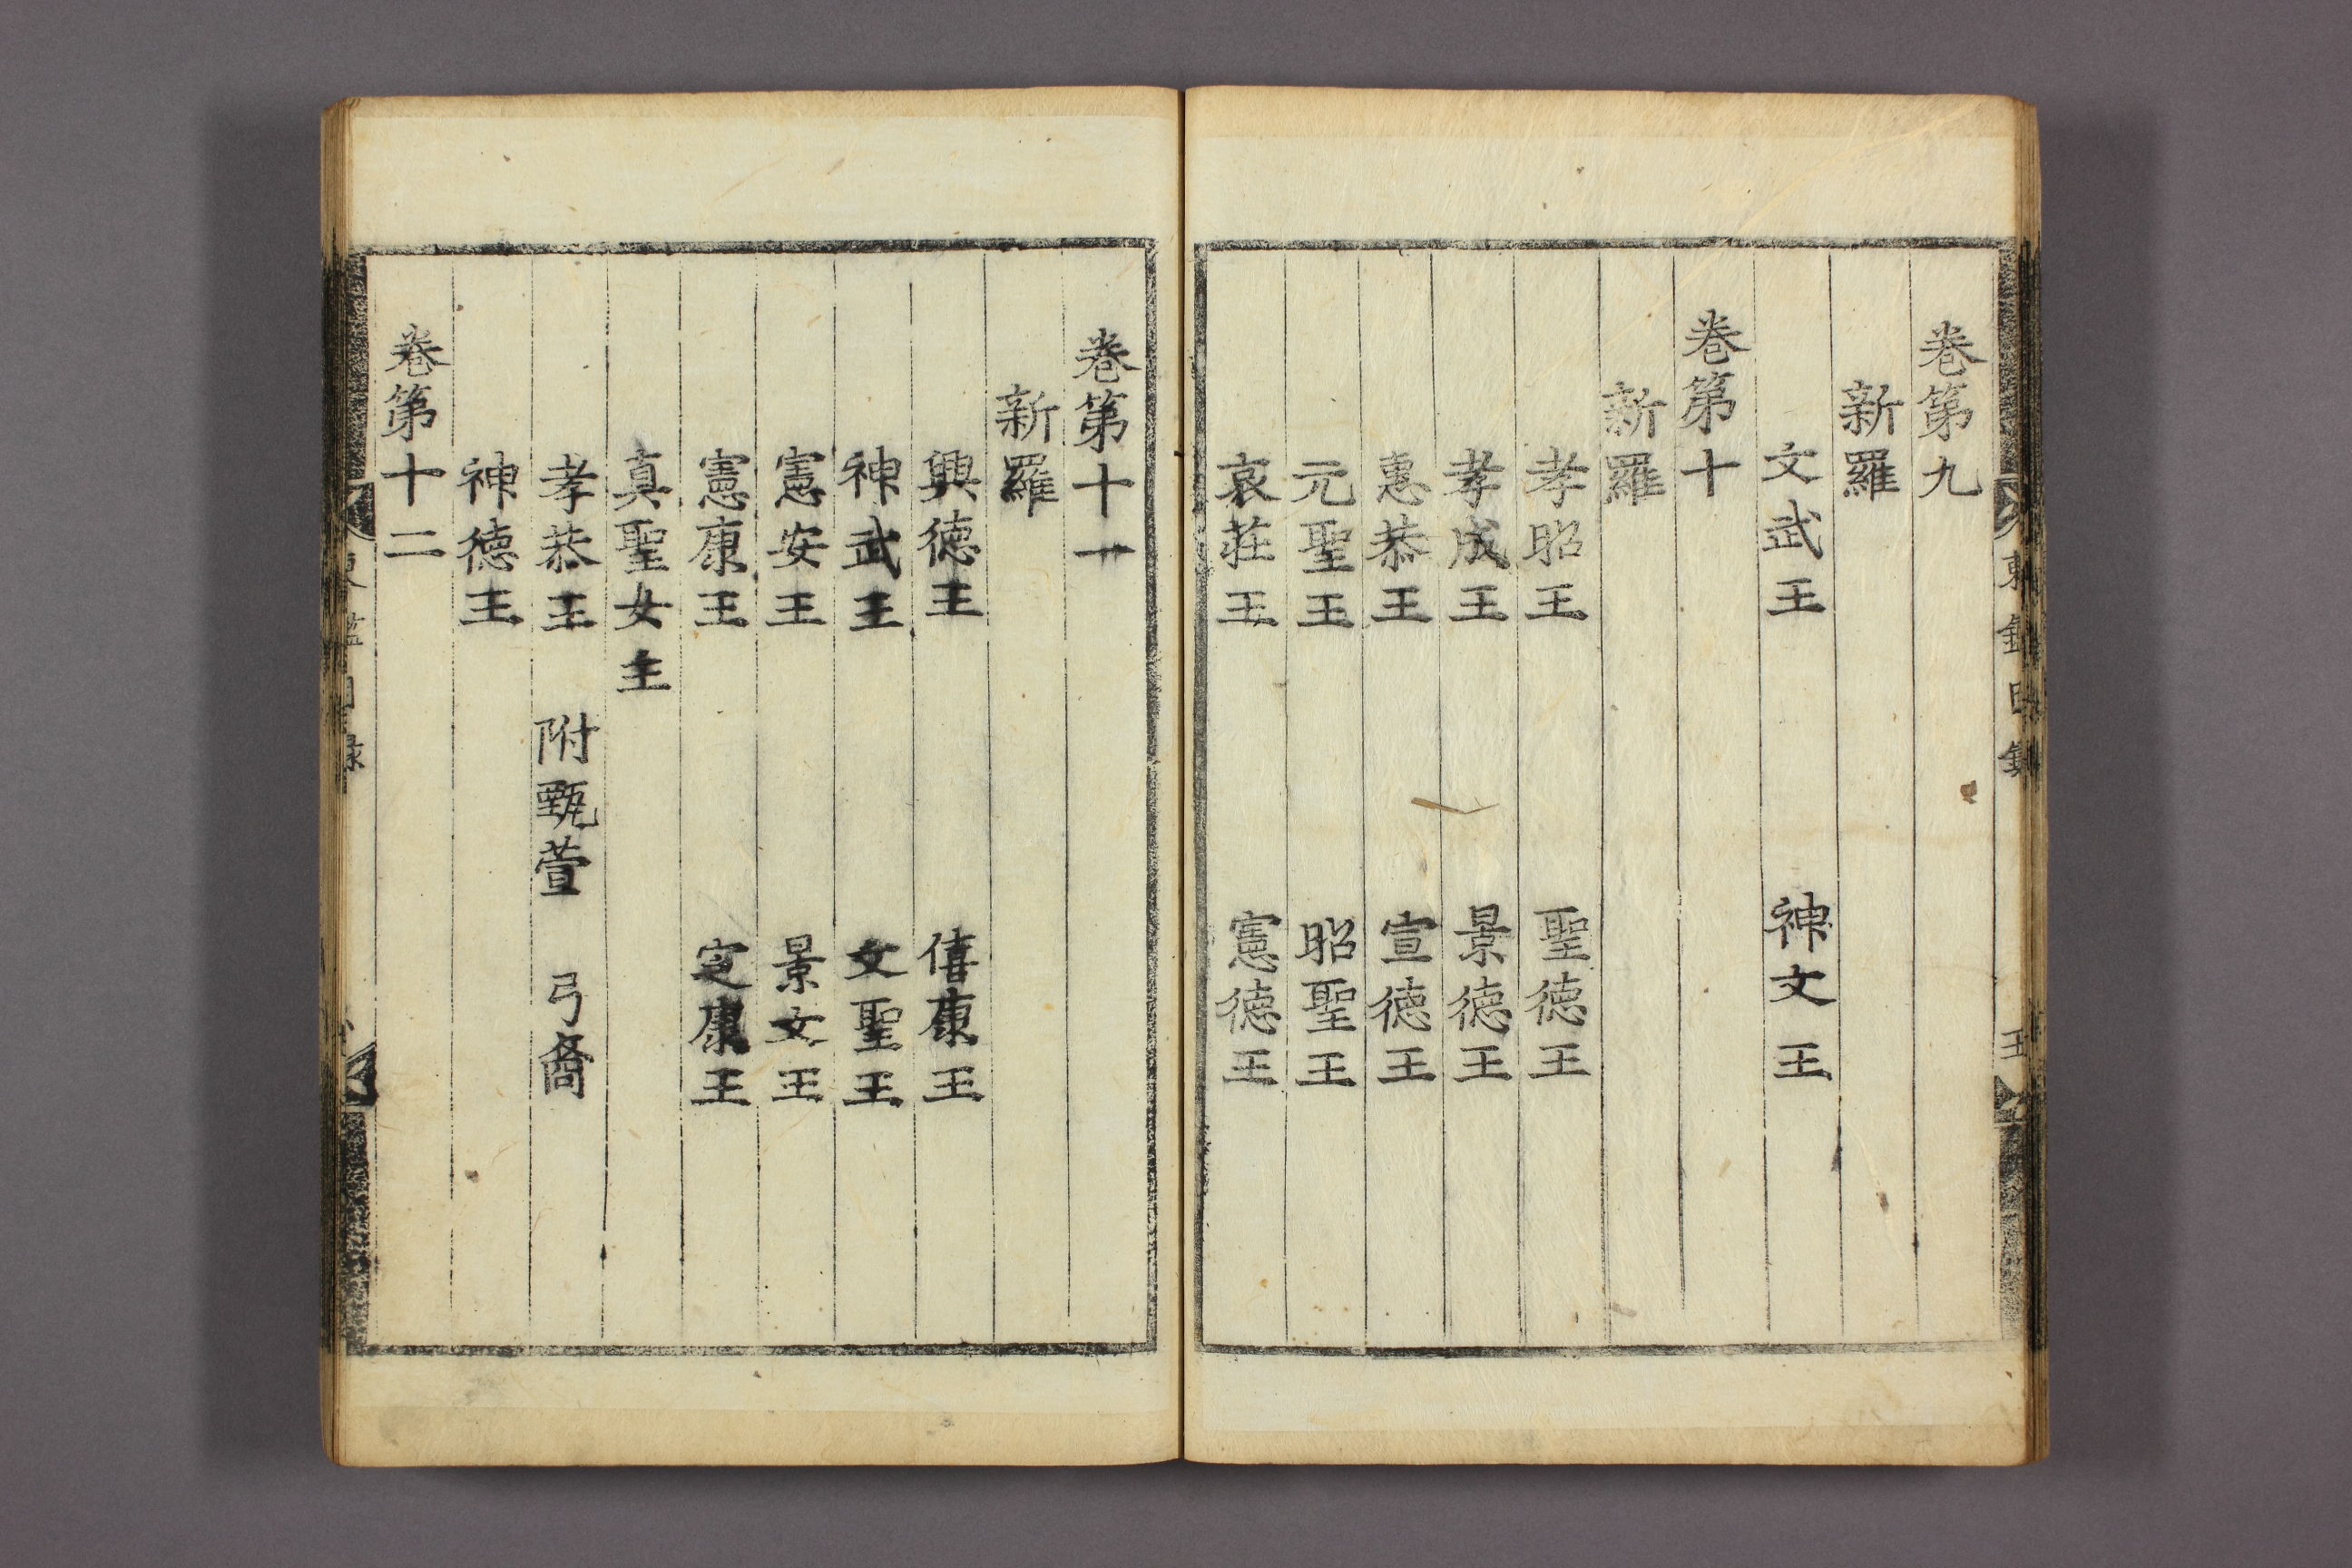 卷第九
新羅
文武王 神文王
卷第十
新羅
孝昭王 聖德王
孝成王 景德王
惠恭王 宣德王
元聖王 昭聖王
哀莊王 憲德王
卷第十一
新羅
興德王 僖康王
神武王 文聖王
憲安王 景文王
憲康王 定康王
真聖女主
孝恭王 附甄萱 弓裔
神德王
卷第十二